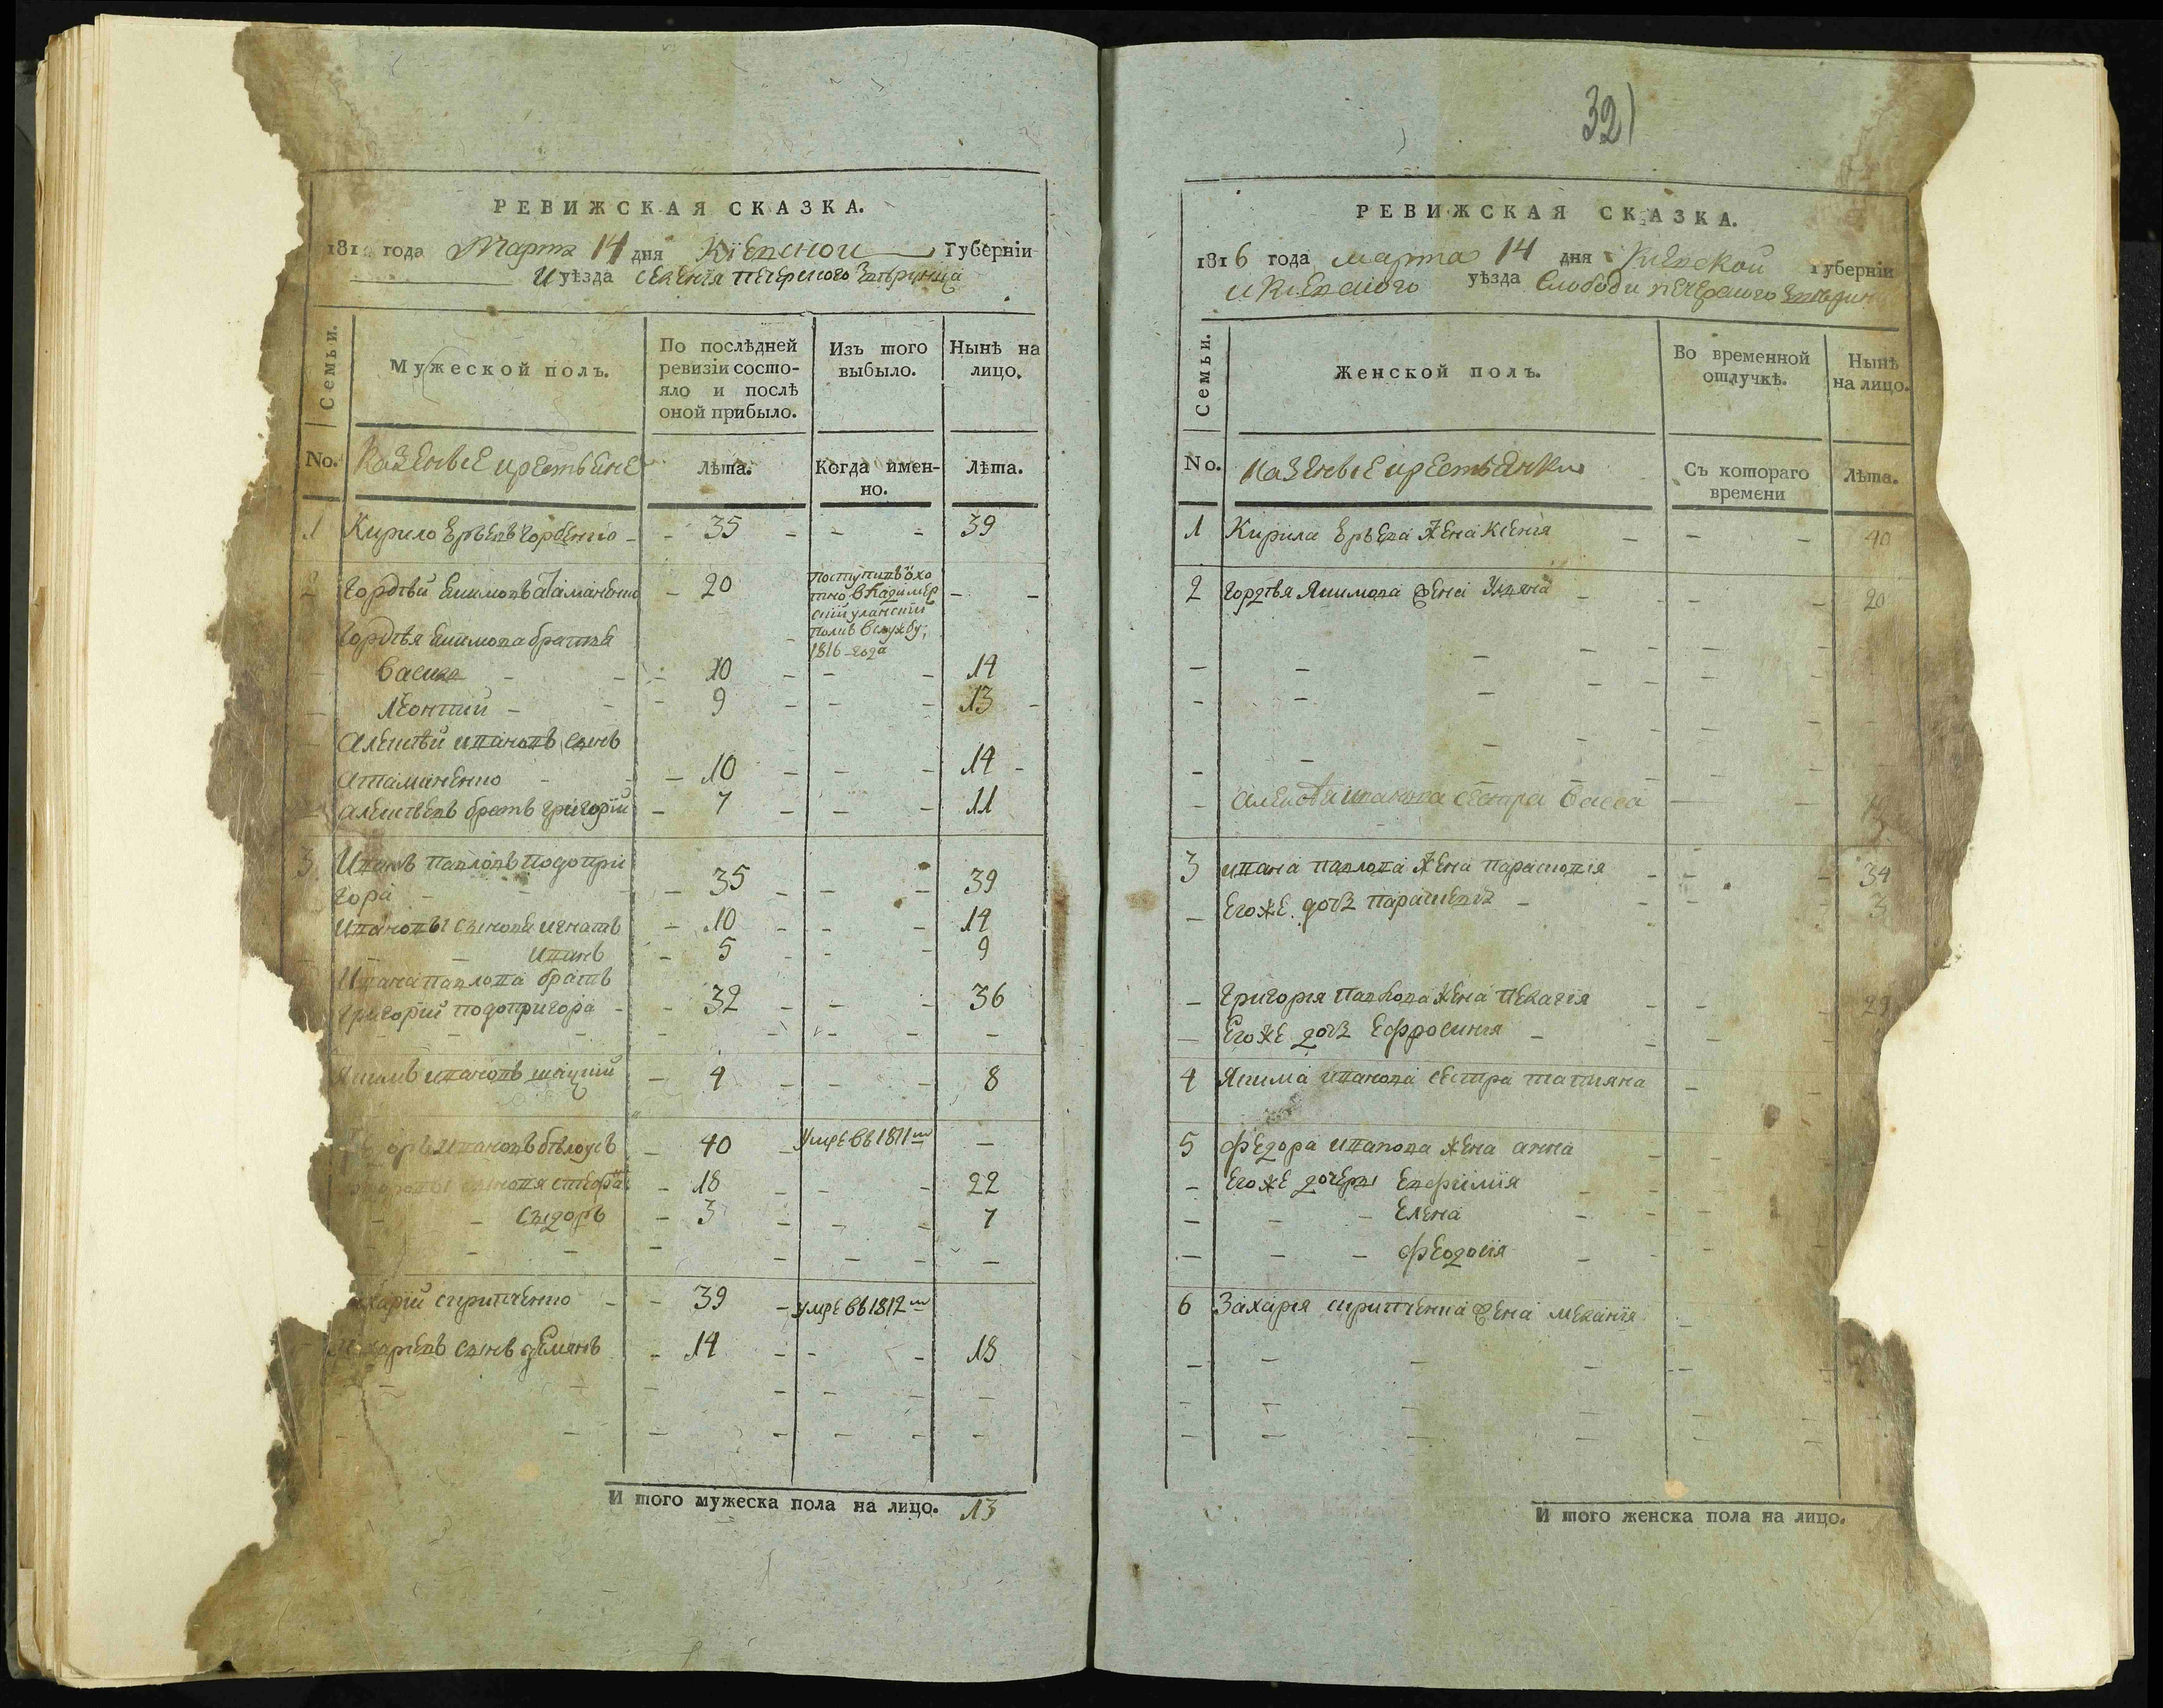 РЕВИЖСКАЯ СКАЗКА.
181 года Марта 14 дня Кіевской Губерніи
И уѣзда селенія печерского Звѣринца
Семьи.
Мужеской полъ.
По послѣдней ревизіи состояло и послѣ оной прибыло.
Изъ того выбыло.
Нынѣ на лицо.
No.
Казеные крестьяне
лѣта.
Когда именно.
лѣта.
1 Кирило Горбенко - - 35 - - - 39
2 Гордѣй Екимовъ Атаманенко - 20 поступилъ охотно в Владимерскій уланскій полкъ в службу; 1816 года - -
Гордѣя Екимова братья
Василь - - - 10 - - - 14
Леонтій - - - 9 - - - 13 -
Алексѣй ивановъ сынъ
Атаманенко - - - 10 - - - 14 -
Алексѣевъ братъ григорїй - 7 - - - 11
3 Иванъ павловъ Подопри
гора - - - - 35 - - - 39
Ивановы сынова игнатъ - 10 - - - 14
- - Иванъ - 5 - - - 9
Ивана павлова братъ
григорїй подопригора - - 32 - - - 36
Якимъ ивановъ - 4 - - - 8
оръ Ивановъ бѣлоусъ - 40 - Умре въ 1811м -
сыновя стефа - 18 - - - 22
- - Сыдоръ - 3 - - - 7
харїй скрипченко - - 39 - умре въ 1812м
харіевъ сынъ демянъ - 14 - - - 18
И того мужеска пола на лицо. 13
32)
РЕВИЖСКАЯ СКАЗКА.
1816 года марта 14 дня Кіевской Губерніи
и Кіевского уѣзда Слободи печерского Звѣрин
Семьи.
Женской полъ.
Во временной отлучкѣ.
Нынѣ на лицо.
No.
Казеные крестьянки
Съ котораго времени
Лѣта.
1 Кирила жена Ксенія - - - 40
2 Гордѣя Якимова жена Уляна - - - 20
- Алексѣя иванова сестра Васса - -
3 ивана павлова жена парасковія - - - 34
- Его же дочь - - - - 3
- Григорія павлова жена пелагія - - - 29
- Его же дочь Ефросинія - - -
4 Якима иванова сестра татияна -
5 Федора иванова жена анна - -
- Его же дочеры Евфимія - - -
- - - Елена - - -
- - - феодосія - - -
6 Захарія скрипченка жена меланія -
И того женска пола на лицо.